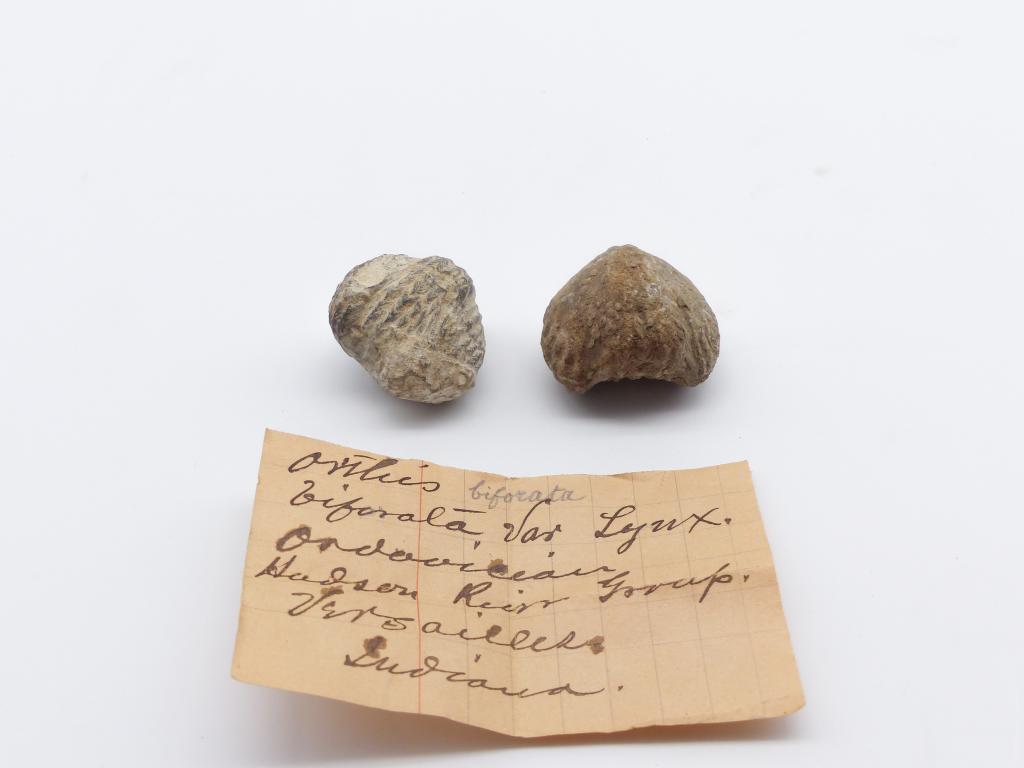 Orthis
biforata
biforata Var Lynx.
Ordovician
Hudson River Group.
Versailles.
Indiana.